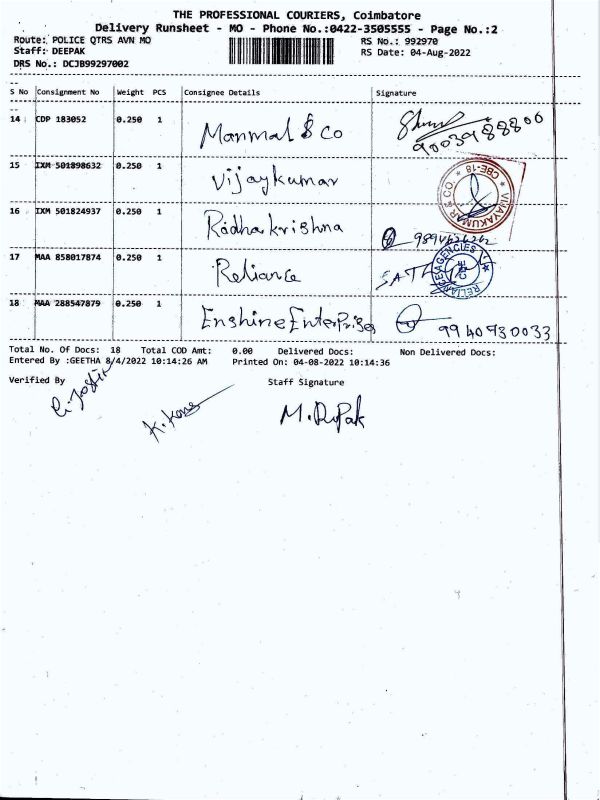 THE PROFESSIONAL COURIERS, Coimbatore
Delivery Runsheet - MO - Phone No.:0422-3505555 - Page No.:2
Route: POLICE QTRS AVN MO RS No.: 992970
Staff: DEEPAK RS Date: 04-Aug-2022
DRS No.: DCJB99297002
S No Consignment No Weight PCS Consignee Details Signature
14 CDP 183052 0.250 1 Manmal & Co
9003988800
15 IXM 501898632 0.250 1 Vijaykumar VIJAYAKUMAR & CO. CBE-18
16 IXM 501824937 0.250 1 Radhakrishna
17 MAA 858017874 0.250 1 Reliance RELIANCE AGENCIES CBE
18 MAA 288547879 0.250 1 Enshine Enterprises 9940930033
Total No. Of Docs: 18 Total COD Amt: 0.00 Delivered Docs: Non Delivered Docs:
Entered By :GEETHA 8/4/2022 10:14:26 AM Printed On: 04-08-2022 10:14:36
Verified By Staff Signature
M. Depak